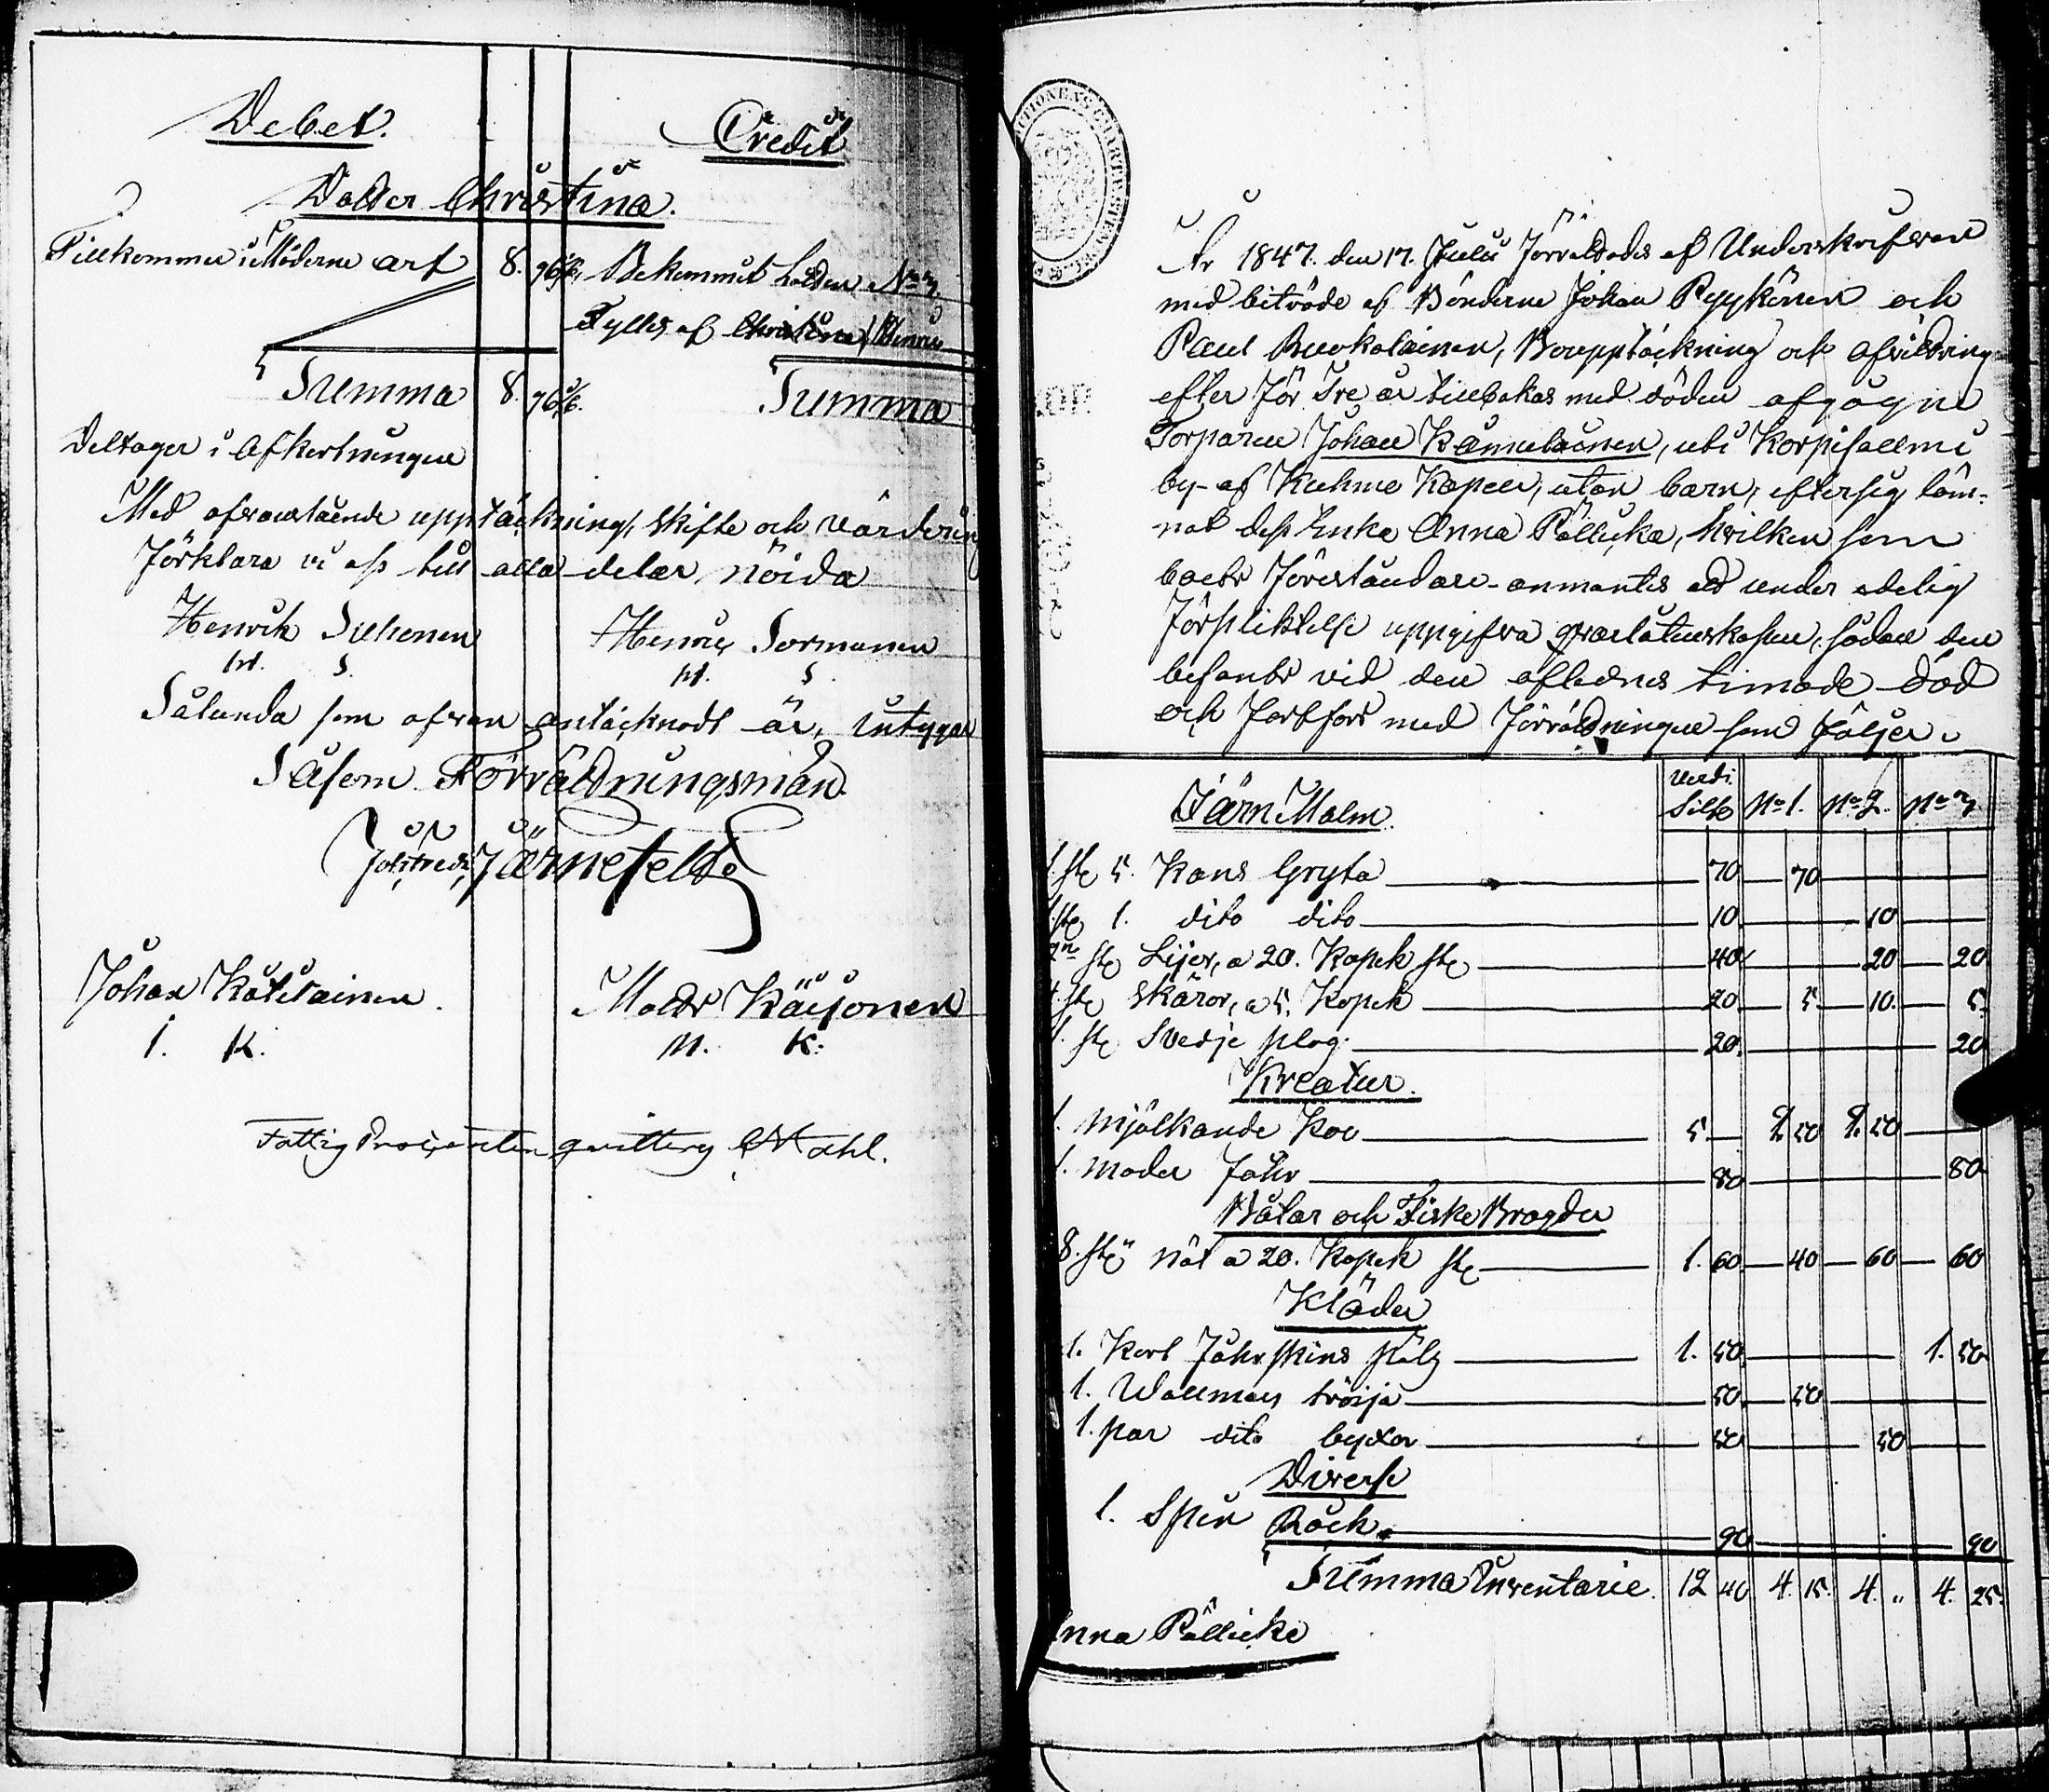 Debet. Credit
Dotter Christina.
Tillkommer i Möderne arf 8. 96 Bekommit Lotten No 3.
Fylles af Christina Henric
Summa 8. 96 Summa
Deltager i Afkortningen
Med ofvanstående upptäckning, skifte och värdering
förklara vi oss till alla delar nöida
Henrik Suhonen Henric Sormunen
Såлunda som ofvan antäcknadt är, intygar
Såsom Förrättningsman
Joh: Fredr: Järnefelt
Johan Katilainen. Matts Käisonen
I. K. M. K:
Fattig Procenten qvitterar Stahl.
År 1847. den 17. Julii förrättades af Underskrifven
med biträde af Bönderne Johan Pyykönen och
Paul Ruokolainen, Bouppteckning och afvittring
efter för tre år tillbakas med döden afgågne
Torparen Johan Kannelainen, uti Korpisallmi
by af Kuhmo Kapell, utan barn, eftersig läm-
nat dess Enka Anna Pållicka, hvilken som
boets föreståndare anmantes att under edelig
förpliktelse uppgifva qvarlåtenskapen sådan den
befants vid den aflednes timade död
och fortfors med förrättningen som följer.
Järn Malm. Verdi. Silfv No 1. No 2. No 3
1. st. 5. Kans Gryta 70 70
1. st. 1. dito dito 10 10
2ne st. Lijer, a 20. Kopek st. 40 20 20
4. st. Skäror, a 5. Kopek 20 5 10 5.
1. st. Svedje plog. 20 20
Kreatur.
1. Mjölkande Ko 5 2 50 2. 50
1. Moder Fåhr 80 80
Båtar och Fiske Bragder
8. st. Nät a 20. Kopek st. 1. 60 40 60 60
Kläder
1. Kort Fåhrskins Pälz 1. 50 1. 50
1. Wallmars tröija 50 50
1. par dito byxor 50 50
Diverse
1. Spin Rock. 90 90
Summa Inventarie. 12 40 4. 15. 4. " 4. 25.
Anna Pållicke